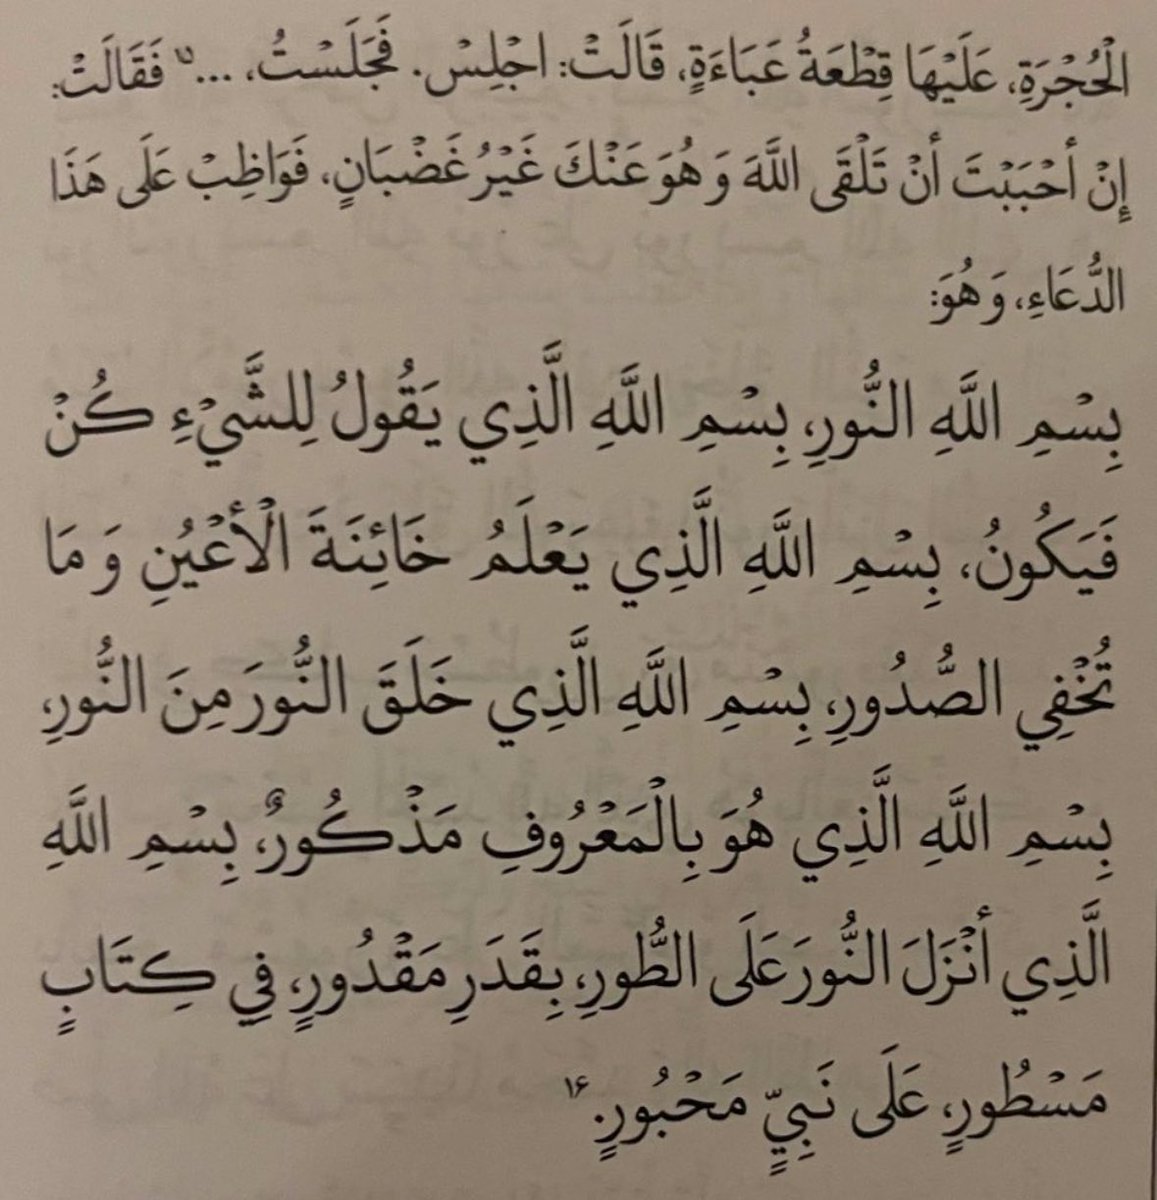 الْحُجْرَةِ، عَلَيْهَا قِطْعَةُ عَبَاءَةٍ، قَالَتْ: اجْلِسْ. فَجَلَسْتُ، ... فَقَالَتْ:
إِنْ أَحْبَبْتَ أَنْ تَلْقَى اللَّهَ وَ هُوَ عَنْكَ غَيْرُ غَضْبَانٍ، فَوَاظِبْ عَلَى هَذَا
الدُّعَاءِ، وَ هُوَ:
بِسْمِ اللَّهِ النُّورِ، بِسْمِ اللَّهِ الَّذِي يَقُولُ لِلشَّيْءِ كُنْ
فَيَكُونُ، بِسْمِ اللَّهِ الَّذِي يَعْلَمُ خَائِنَةَ الْأَعْيُنِ وَ مَا
تُخْفِي الصُّدُورِ، بِسْمِ اللَّهِ الَّذِي خَلَقَ النُّورَ مِنَ النُّورِ،
بِسْمِ اللَّهِ الَّذِي هُوَ بِالْمَعْرُوفِ مَذْكُورٌ، بِسْمِ اللَّهِ
الَّذِي أَنْزَلَ النُّورَ عَلَى الطُّورِ، بِقَدَرٍ مَقْدُورٍ، فِي كِتَابٍ
مَسْطُورٍ، عَلَى نَبِيٍّ مَحْبُورٍ.۱۶